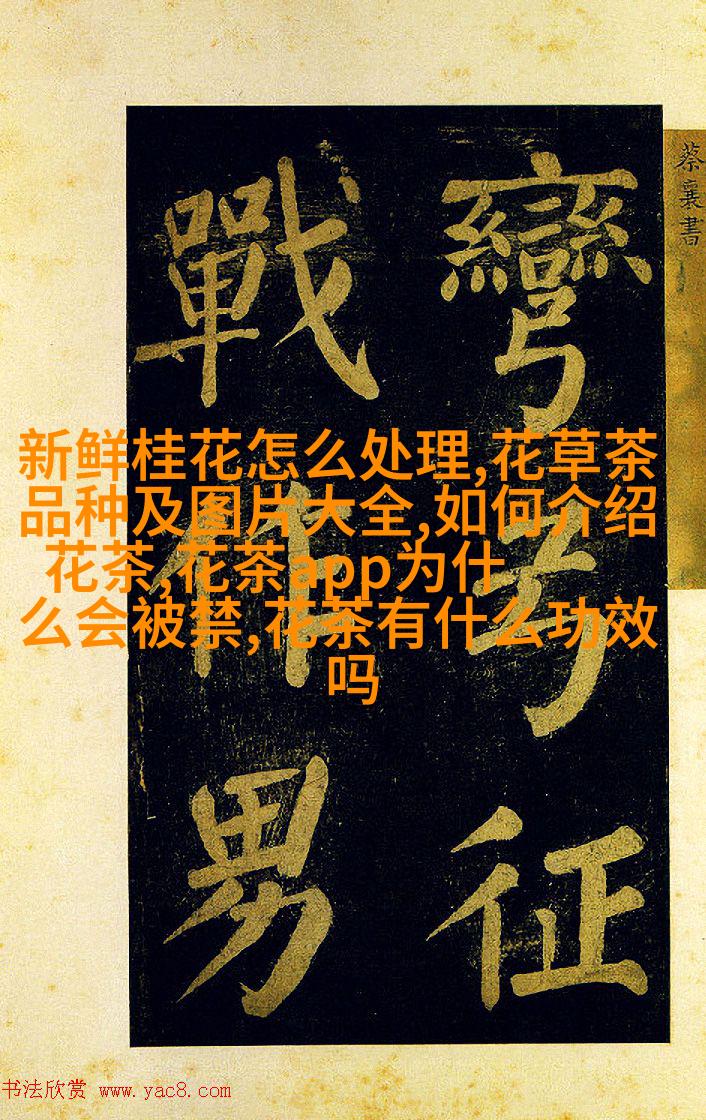 蔡襄書
彎弓征
戰作男
新鲜桂花怎么处理,花草茶
品种及图片大全,如何介绍
花茶,花茶app为什
么会被禁,花茶有什么功效
吗
书法欣赏 www.yac8.com